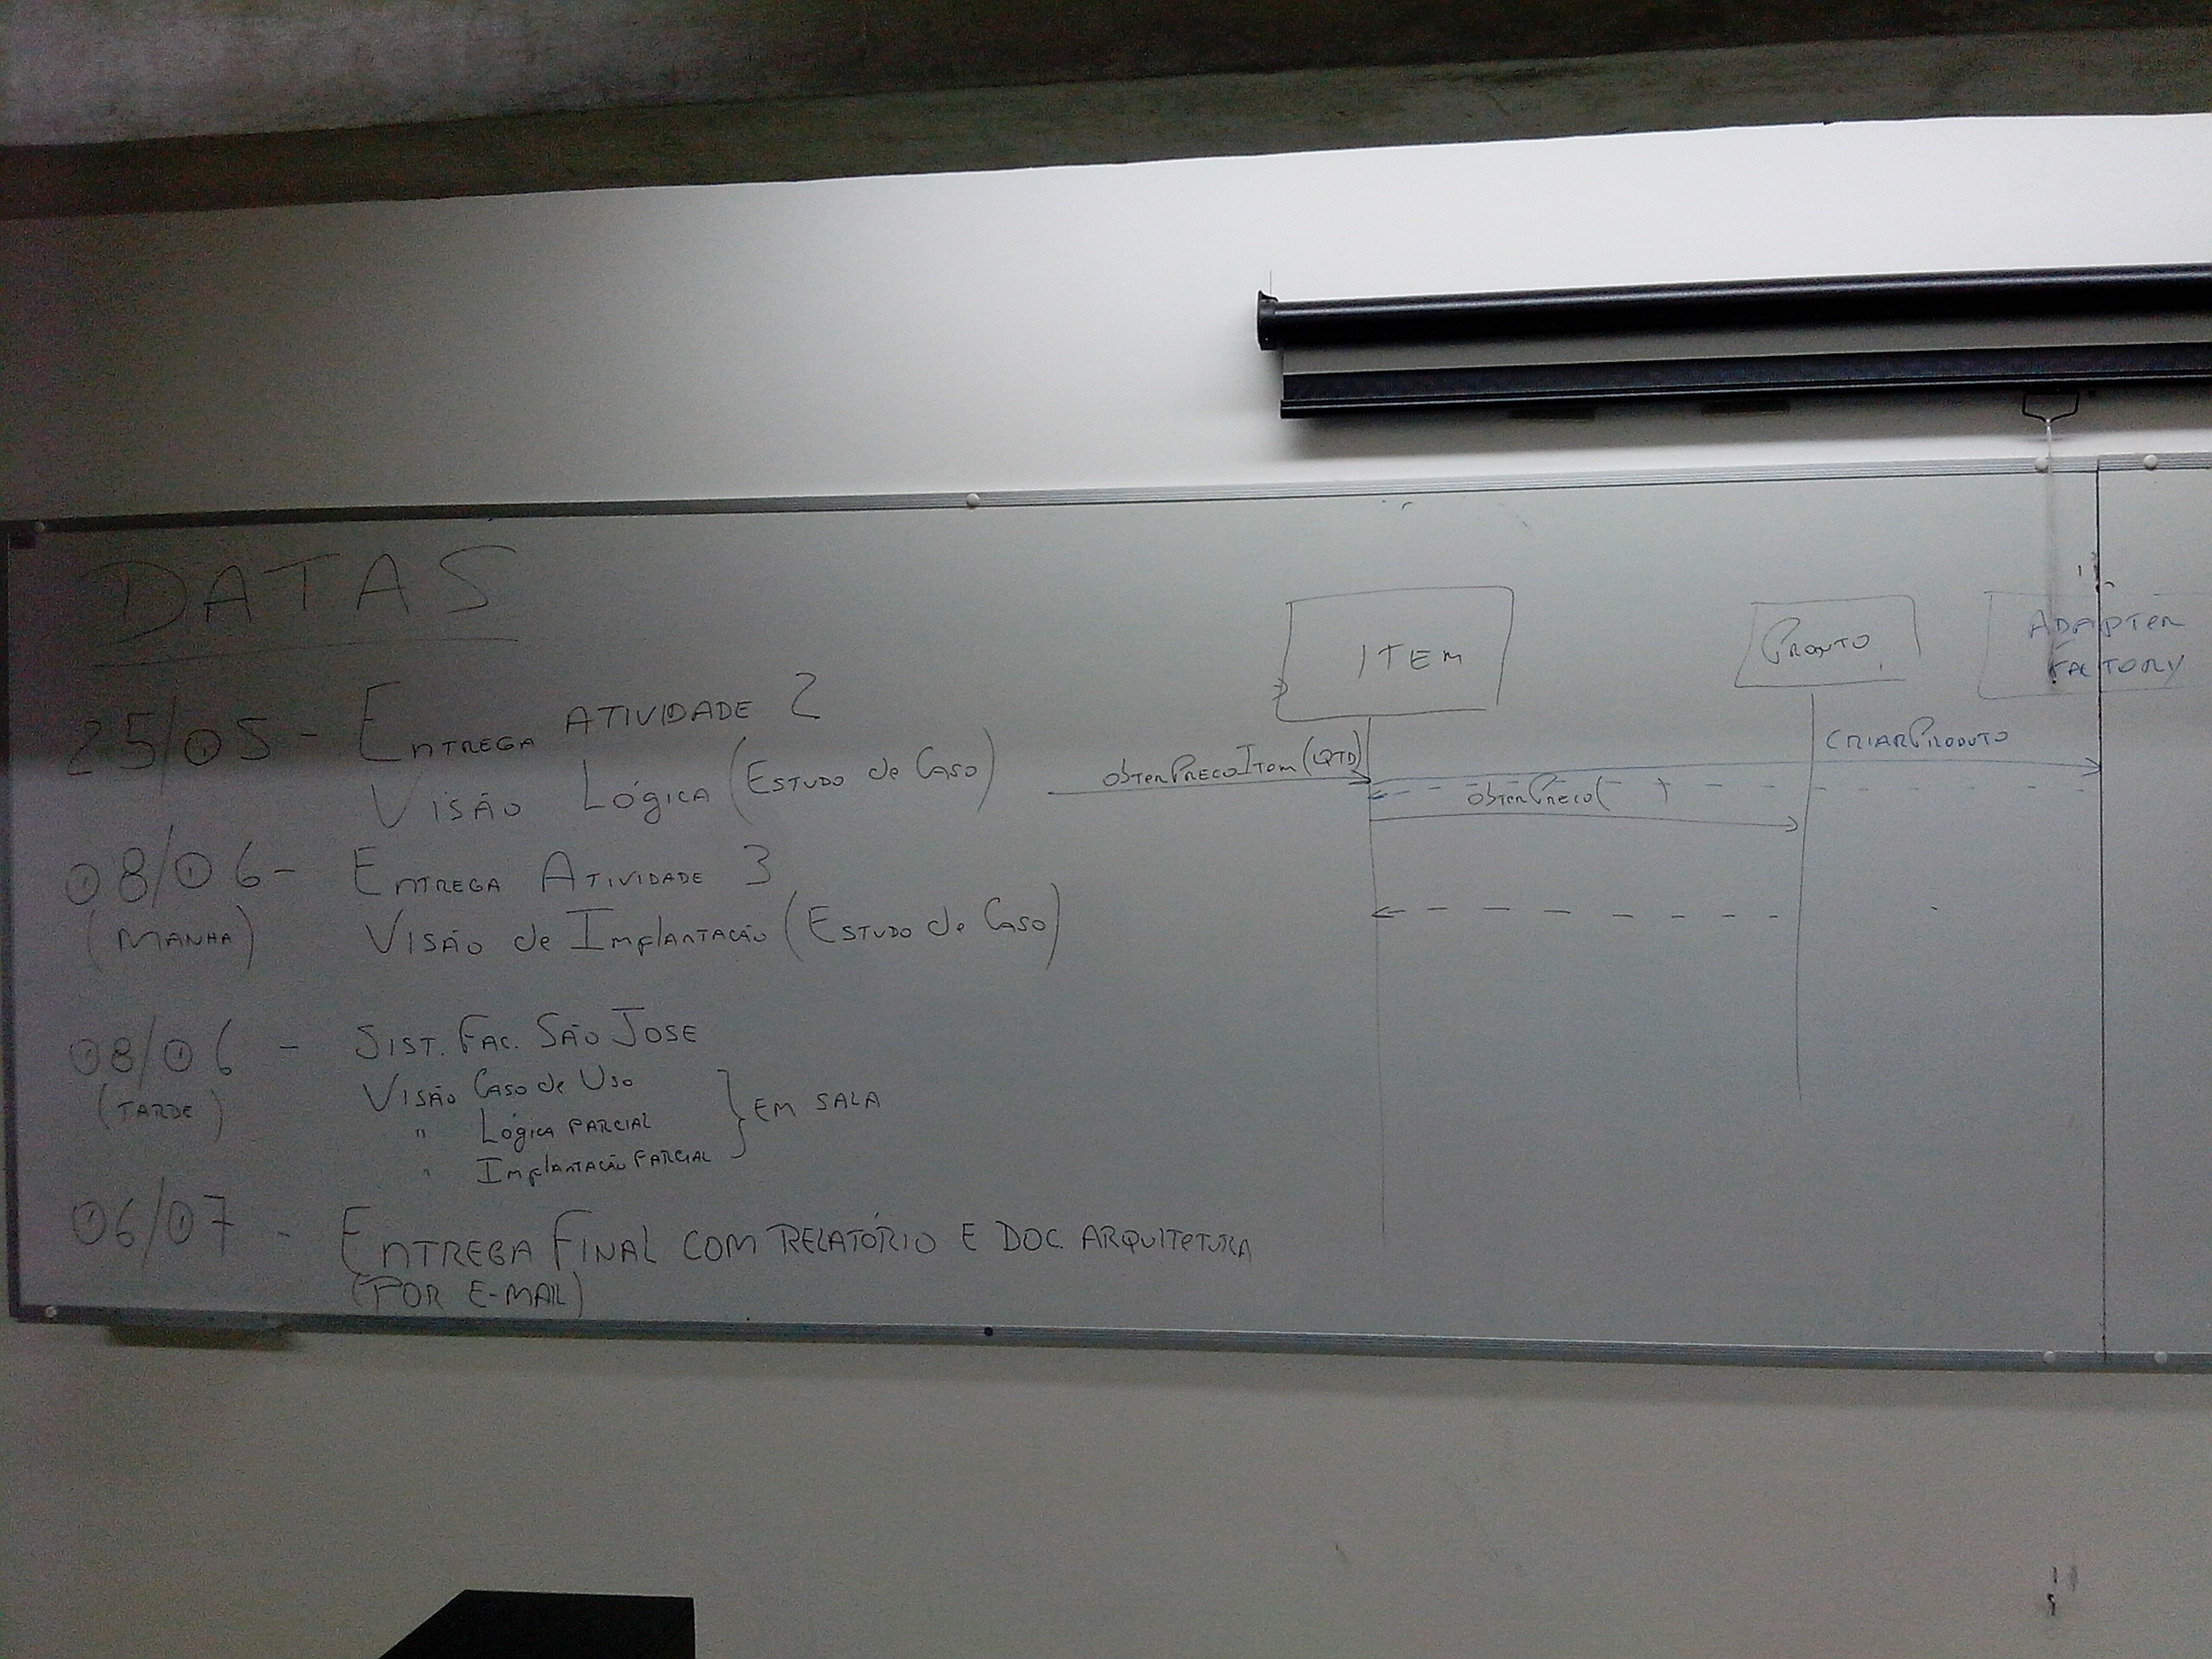 DATAS
25/05 - ENTREGA ATIVIDADE 2
VISÃO LÓGICA (ESTUDO de CASO)
08/06 - ENTREGA ATIVIDADE 3
(MANHA) VISÃO de IMPLANTAÇÃO (ESTUDO de CASO)
08/06 - SIST. FAC. SÃO JOSE
(TARDE) VISÃO CASO de USO
" LÓGICA PARCIAL } EM SALA
" IMPLANTAÇÃO PARCIAL
06/07 - ENTREGA FINAL COM RELATÓRIO E DOC. ARQUITETURA
(POR E-MAIL)
ITEM
PRONTO
ADAPTER
FACTORY
CRIARPRODUTO
obterPrecoItem (QTD)
obterPreco( )